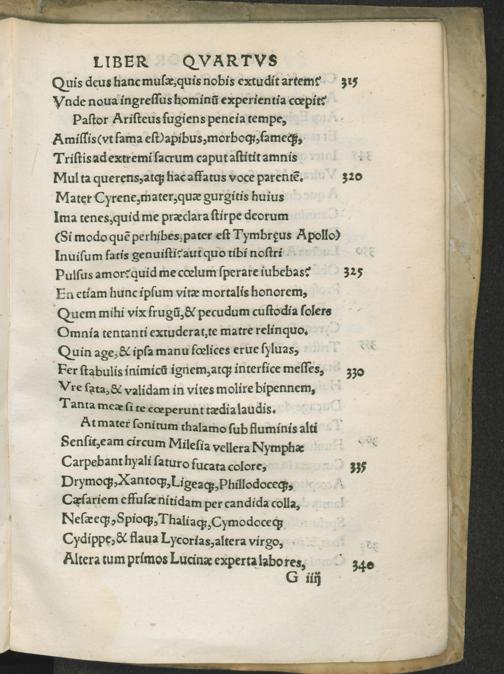 LIBER QVARTVS
Quis deus hanc musæ, quis nobis extudit artem? 315
Vnde noua ingressus hominũ experientia cœpit?
Pastor Aristeus fugiens peneia tempe,
Amissis (vt fama est) apibus, morboq;, fameq;,
Tristis ad extremi sacrum caput astitit amnis
Multa querens, atq; hac affatus voce parentẽ. 320
Mater Cyrene, mater, quæ gurgitis huius
Ima tenes, quid me præclara stirpe deorum
(Si modo quẽ perhibes, pater est Tymbręus Apollo)
Inuisum fatis genuisti? aut quo tibi nostri
Pulsus amor? quid me cœlum sperare iubebas? 325
En etiam hunc ipsum vitæ mortalis honorem,
Quem mihi vix frugũ, & pecudum custodia solers
Omnia tentanti extuderat, te matre relinquo.
Quin age, & ipsa manu fœlices erue syluas,
Fer stabulis inimicũ ignem, atq; interfice messes, 330
Vre sata, & validam in vites molire bipennem,
Tanta meæ si te cœperunt tædia laudis.
At mater sonitum thalamo sub fluminis alti
Sensit, eam circum Milesia vellera Nymphæ
Carpebant hyali saturo fucata colore, 335
Drymoq;, Xantoq;, Ligeaq;, Phillodoceq;,
Cæsariem effusæ nitidam per candida colla,
Nesæeq;, Spioq;, Thaliaq;, Cymodoceq;
Cydippe, & flaua Lycorias, altera virgo,
Altera tum primos Lucinæ experta labores, 340
G iiij